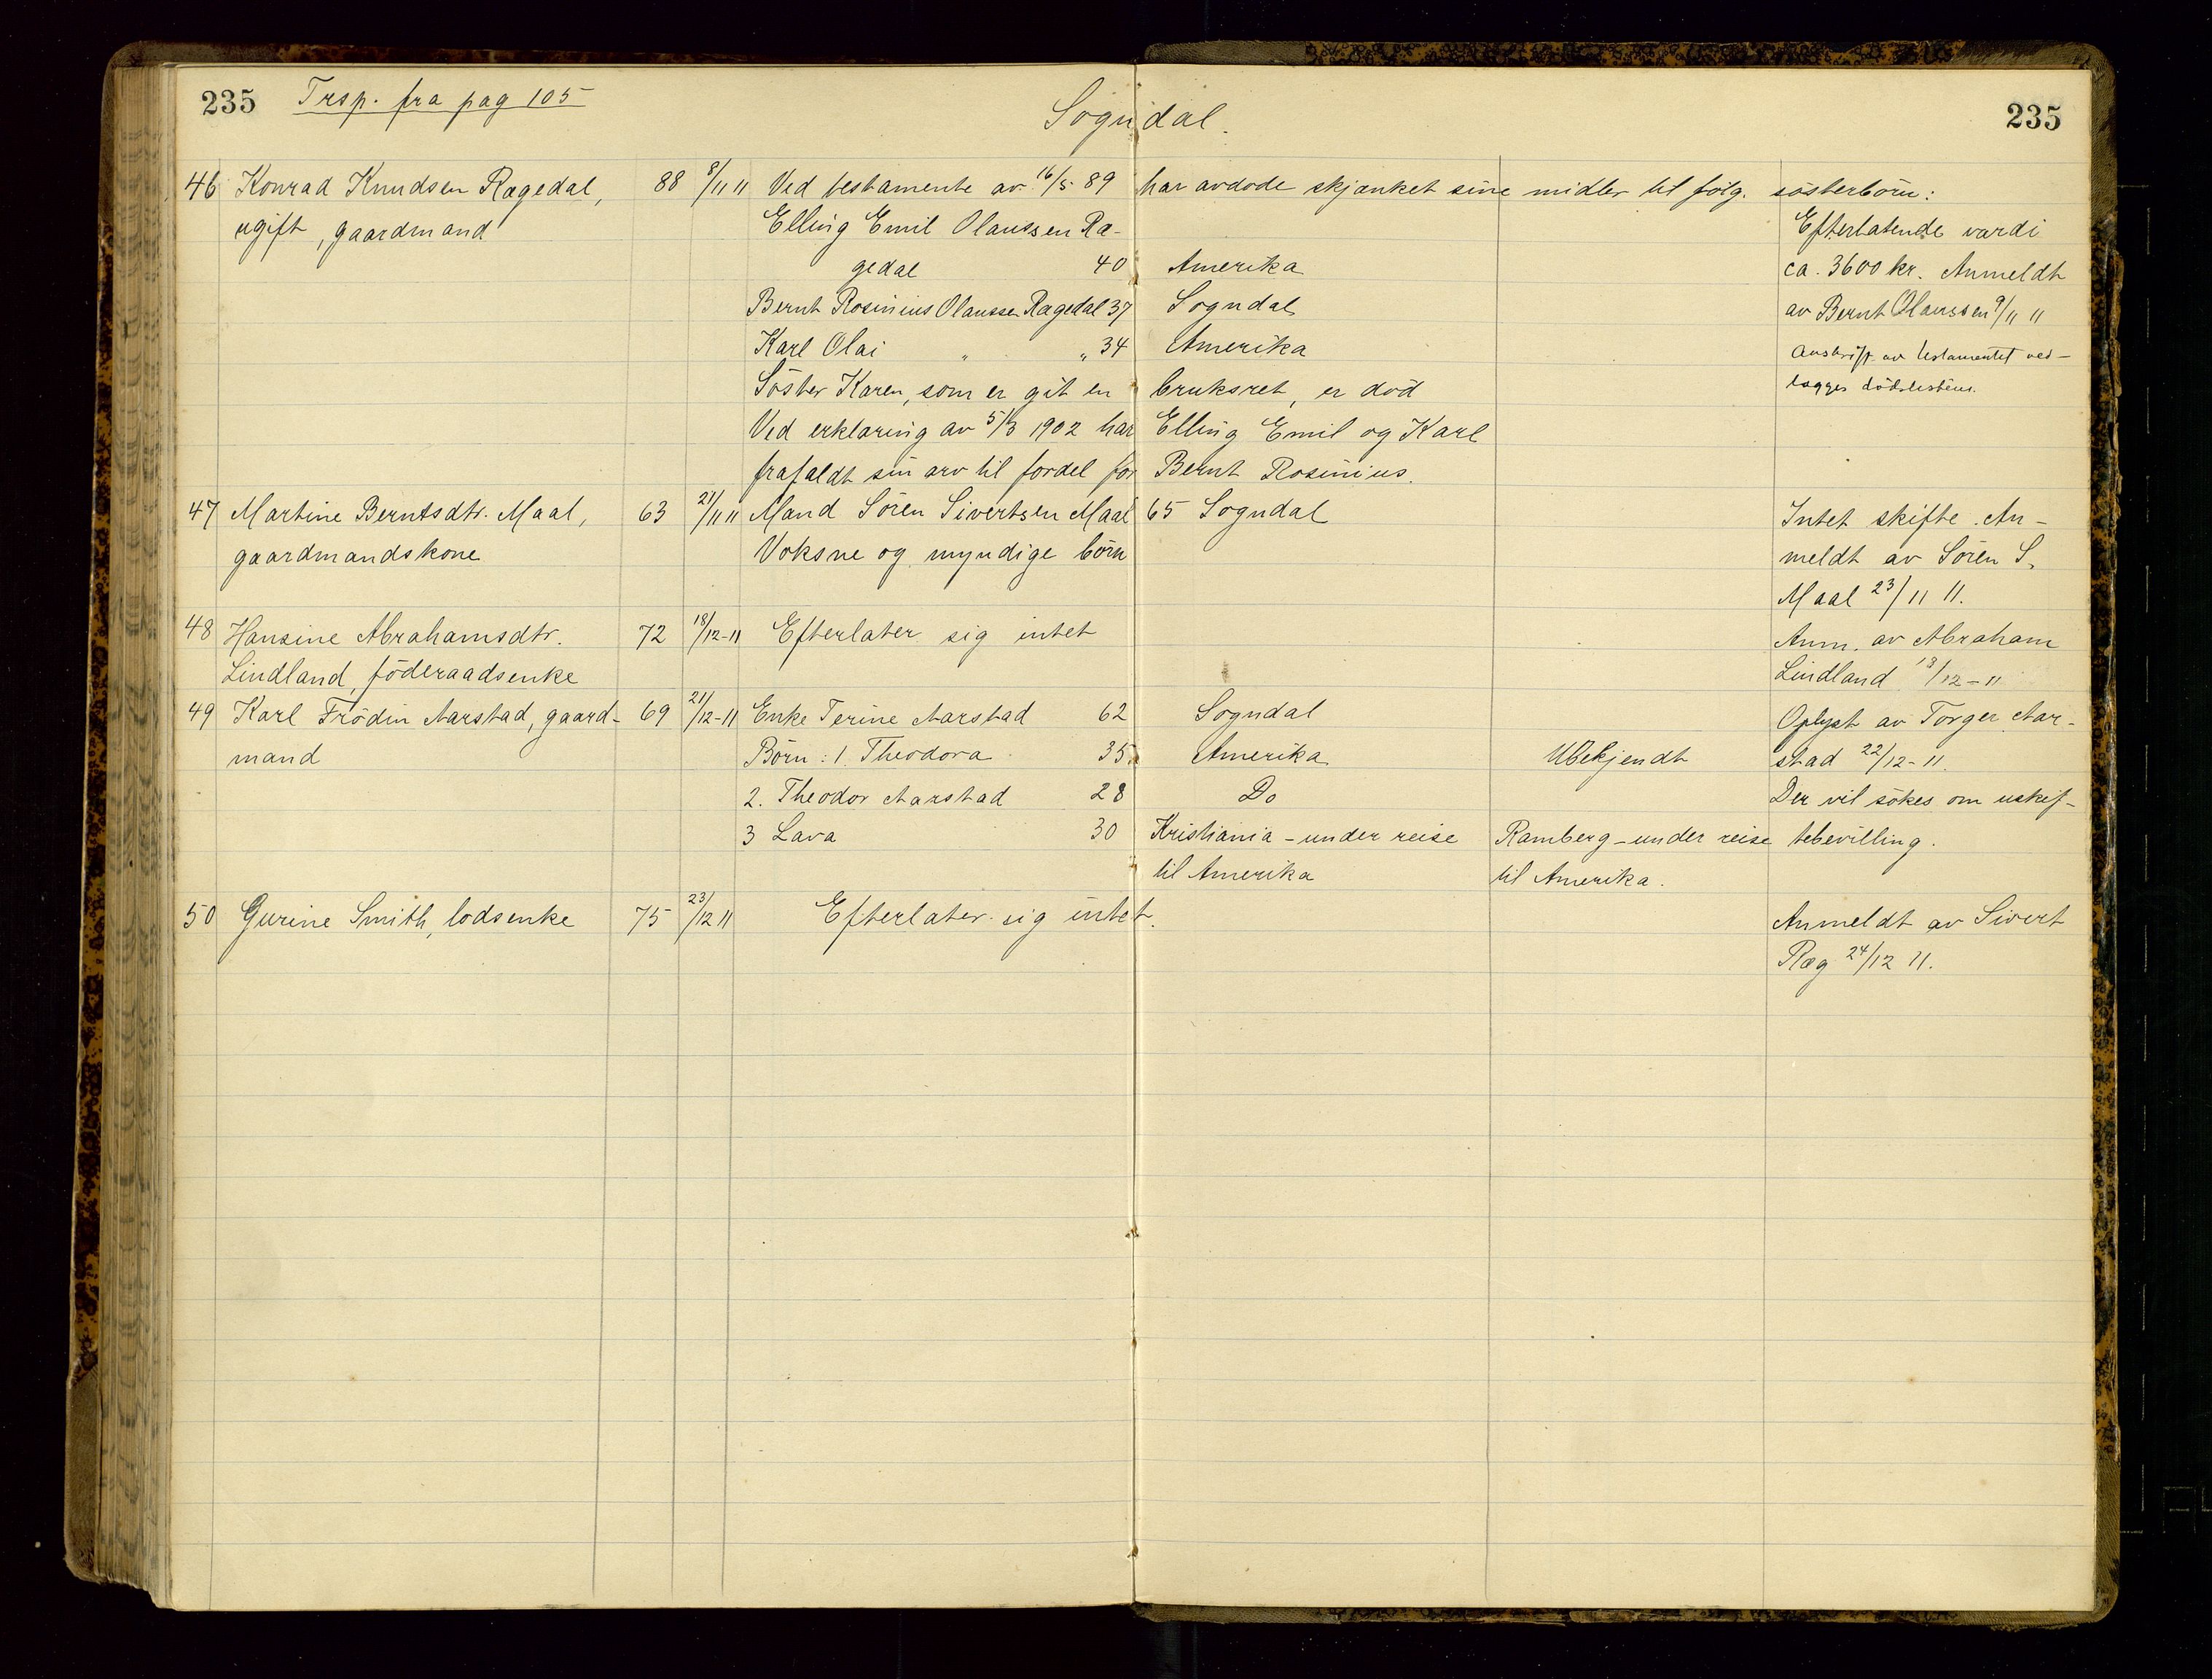 235 Trsp. fra pag 105 Sogndal. 235
46 Konrad Knudsen Rægedal, 88 8/11 11 Ved testamente av 16/5 89 har avdöde skjænket sine midler til fölg. sösterbörn:
ugift, gaardmand Elling Emil Olaussen Ræ- Efterlatende værdi
gedal 40 Amerika ca. 3600 kr. Anmeldt
Bernt Rosinius Olaussen Rægedal 37 Sogndal av Bernt Olaussen 9/11 11
Karl Olai " " 34 Amerika Avskrift av testamentet ved-
Söster Karen, som er git en bruksret, er död lægges dödslisten.
Ved erklæring av 5/3 1902 har Elling Emil og Karl
frafaldt sin arv til fordel for Bernt Rosinius.
47 Martine Berntsdtr. Maal, 63 21/11 11 Mand Sören Sivertsen Maal 65 Sogndal Intet skifte. An-
gaardmandskone Voksne og myndige börn meldt av Sören S.
Maal 23/11 11.
48 Hansine Abrahamsdtr. 72 18/12-11 Efterlater sig intet Anm. av Abraham
Lindland, föderaadsenke Lindland 13/12-11
49 Karl Frödin Aarstad, gaard- 69 21/12-11 Enke Terine Aarstad 62 Sogndal Oplyst av Torger Aar-
mand Börn: 1. Theodora 35 Amerika Ubekjendt stad 22/12-11.
2. Theodor Aarstad 28 Do Der vil sökes om uskif-
3 Lava 30 Kristiania - under reise Ramberg - under reise tebevilling.
til Amerika til Amerika.
50 Gurine Smith, lodsenke 75 23/12 11 Efterlater sig intet. Anmeldt av Sivert
Ræg 24/12 11.